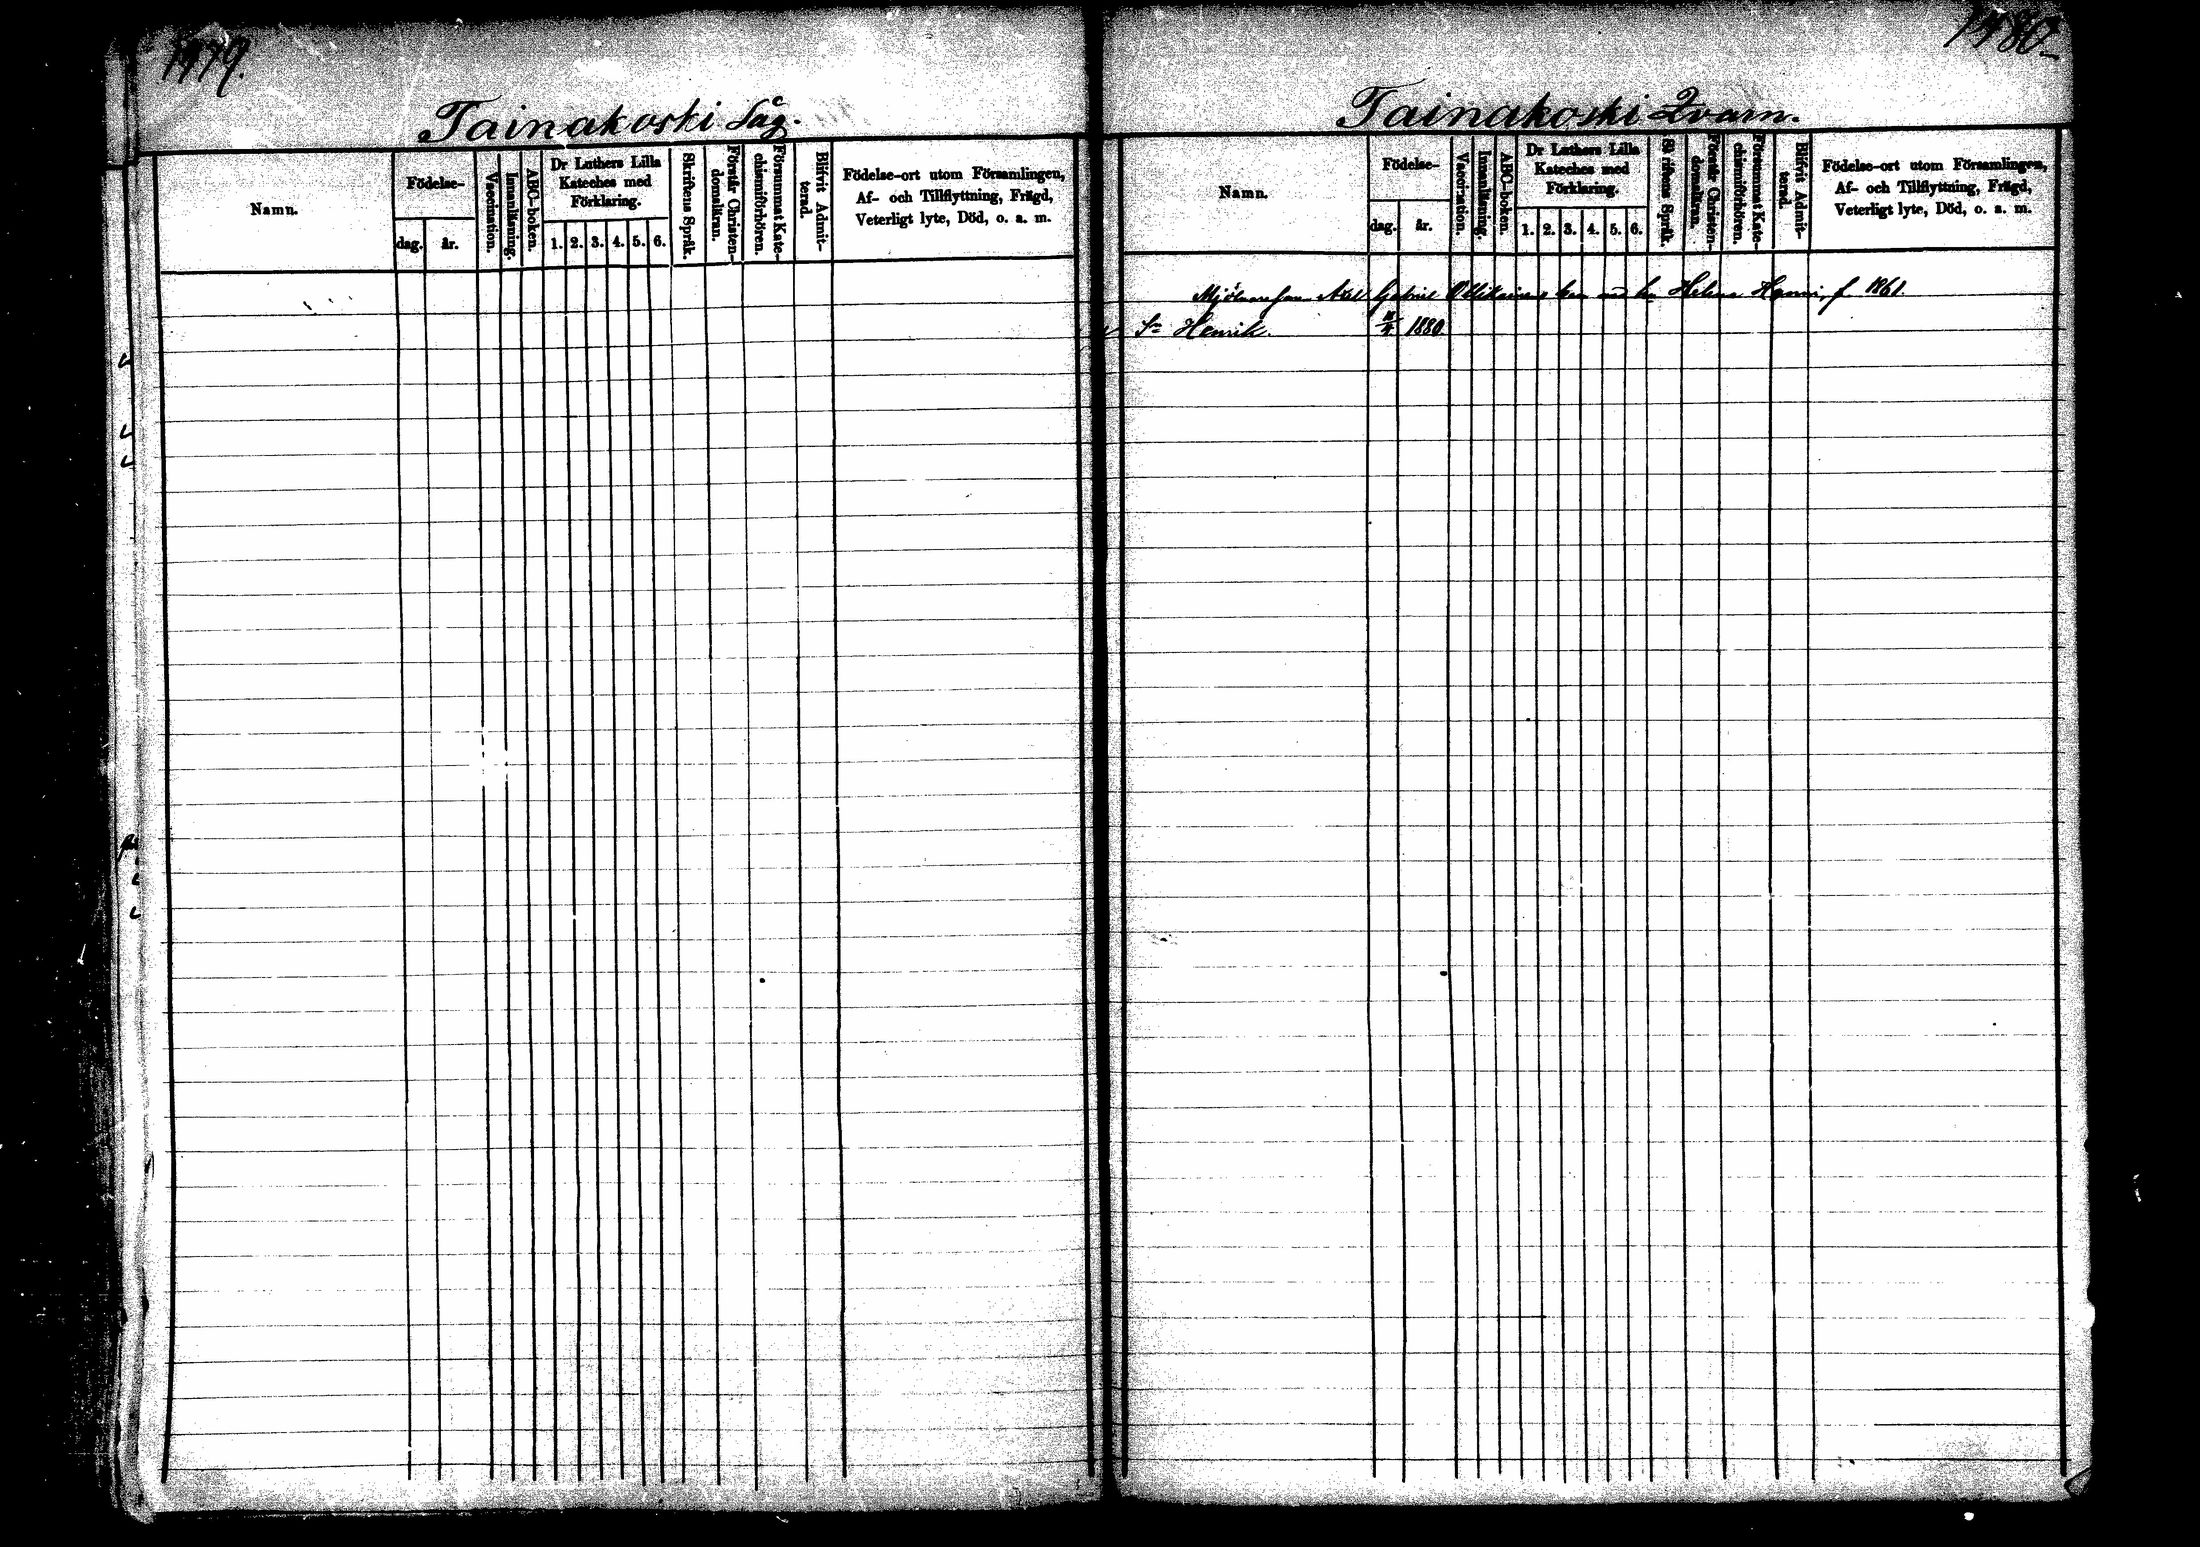 1479.
Tainakoski Såg.
Namn.
Födelse-
dag.
år.
Vaccination.
Innanläsning.
ABC-boken.
Dr Luthers Lilla
Kateches med
Förklaring.
1. 2. 3. 4. 5. 6.
Skriftens Språk.
Förstår Christen-
domsläran.
Försummat Kate-
chismiförhören.
Blifvit Admit-
terad.
Födelse-ort utom Församlingen,
Af- och Tillflyttning, Frägd,
Veterligt lyte, Död, o. a. m.
1480
Tainakoski Qvarn.
Namn.
Födelse-
dag.
år.
Vaccination.
Innanläsning.
ABC-boken.
Dr Luthers Lilla
Kateches med
Förklaring.
1. 2. 3. 4. 5. 6.
Skriftens Språk.
Förstår Christen-
domsläran.
Försummat Kate-
chismiförhören.
Blifvit Admit-
terad.
Födelse-ort utom Församlingen,
Af- och Tillflyttning, Frägd,
Veterligt lyte, Död, o. a. m.
Gabriel Ollikainens Helena f. 1861.
Sn Henrik. 1880